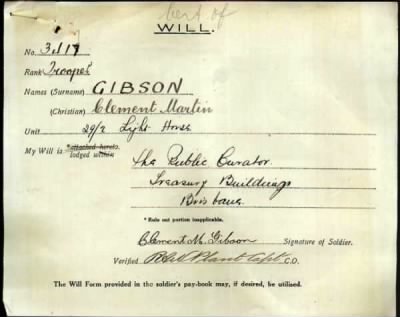 Cert of
WILL.
No. 3117
Rank Trooper
Names (Surname) GIBSON
(Christian) Clement Martin
Unit 29/2 Light Horse
My Will is *attached hereto. lodged within
The Public Curator
Treasury Buildings
Brisbane
* Rule out portion inapplicable.
Clement M. Gibson Signature of Soldier.
Verified Plant Capt C.O.
The Will Form provided in the soldier's pay-book may, if desired, be utilised.